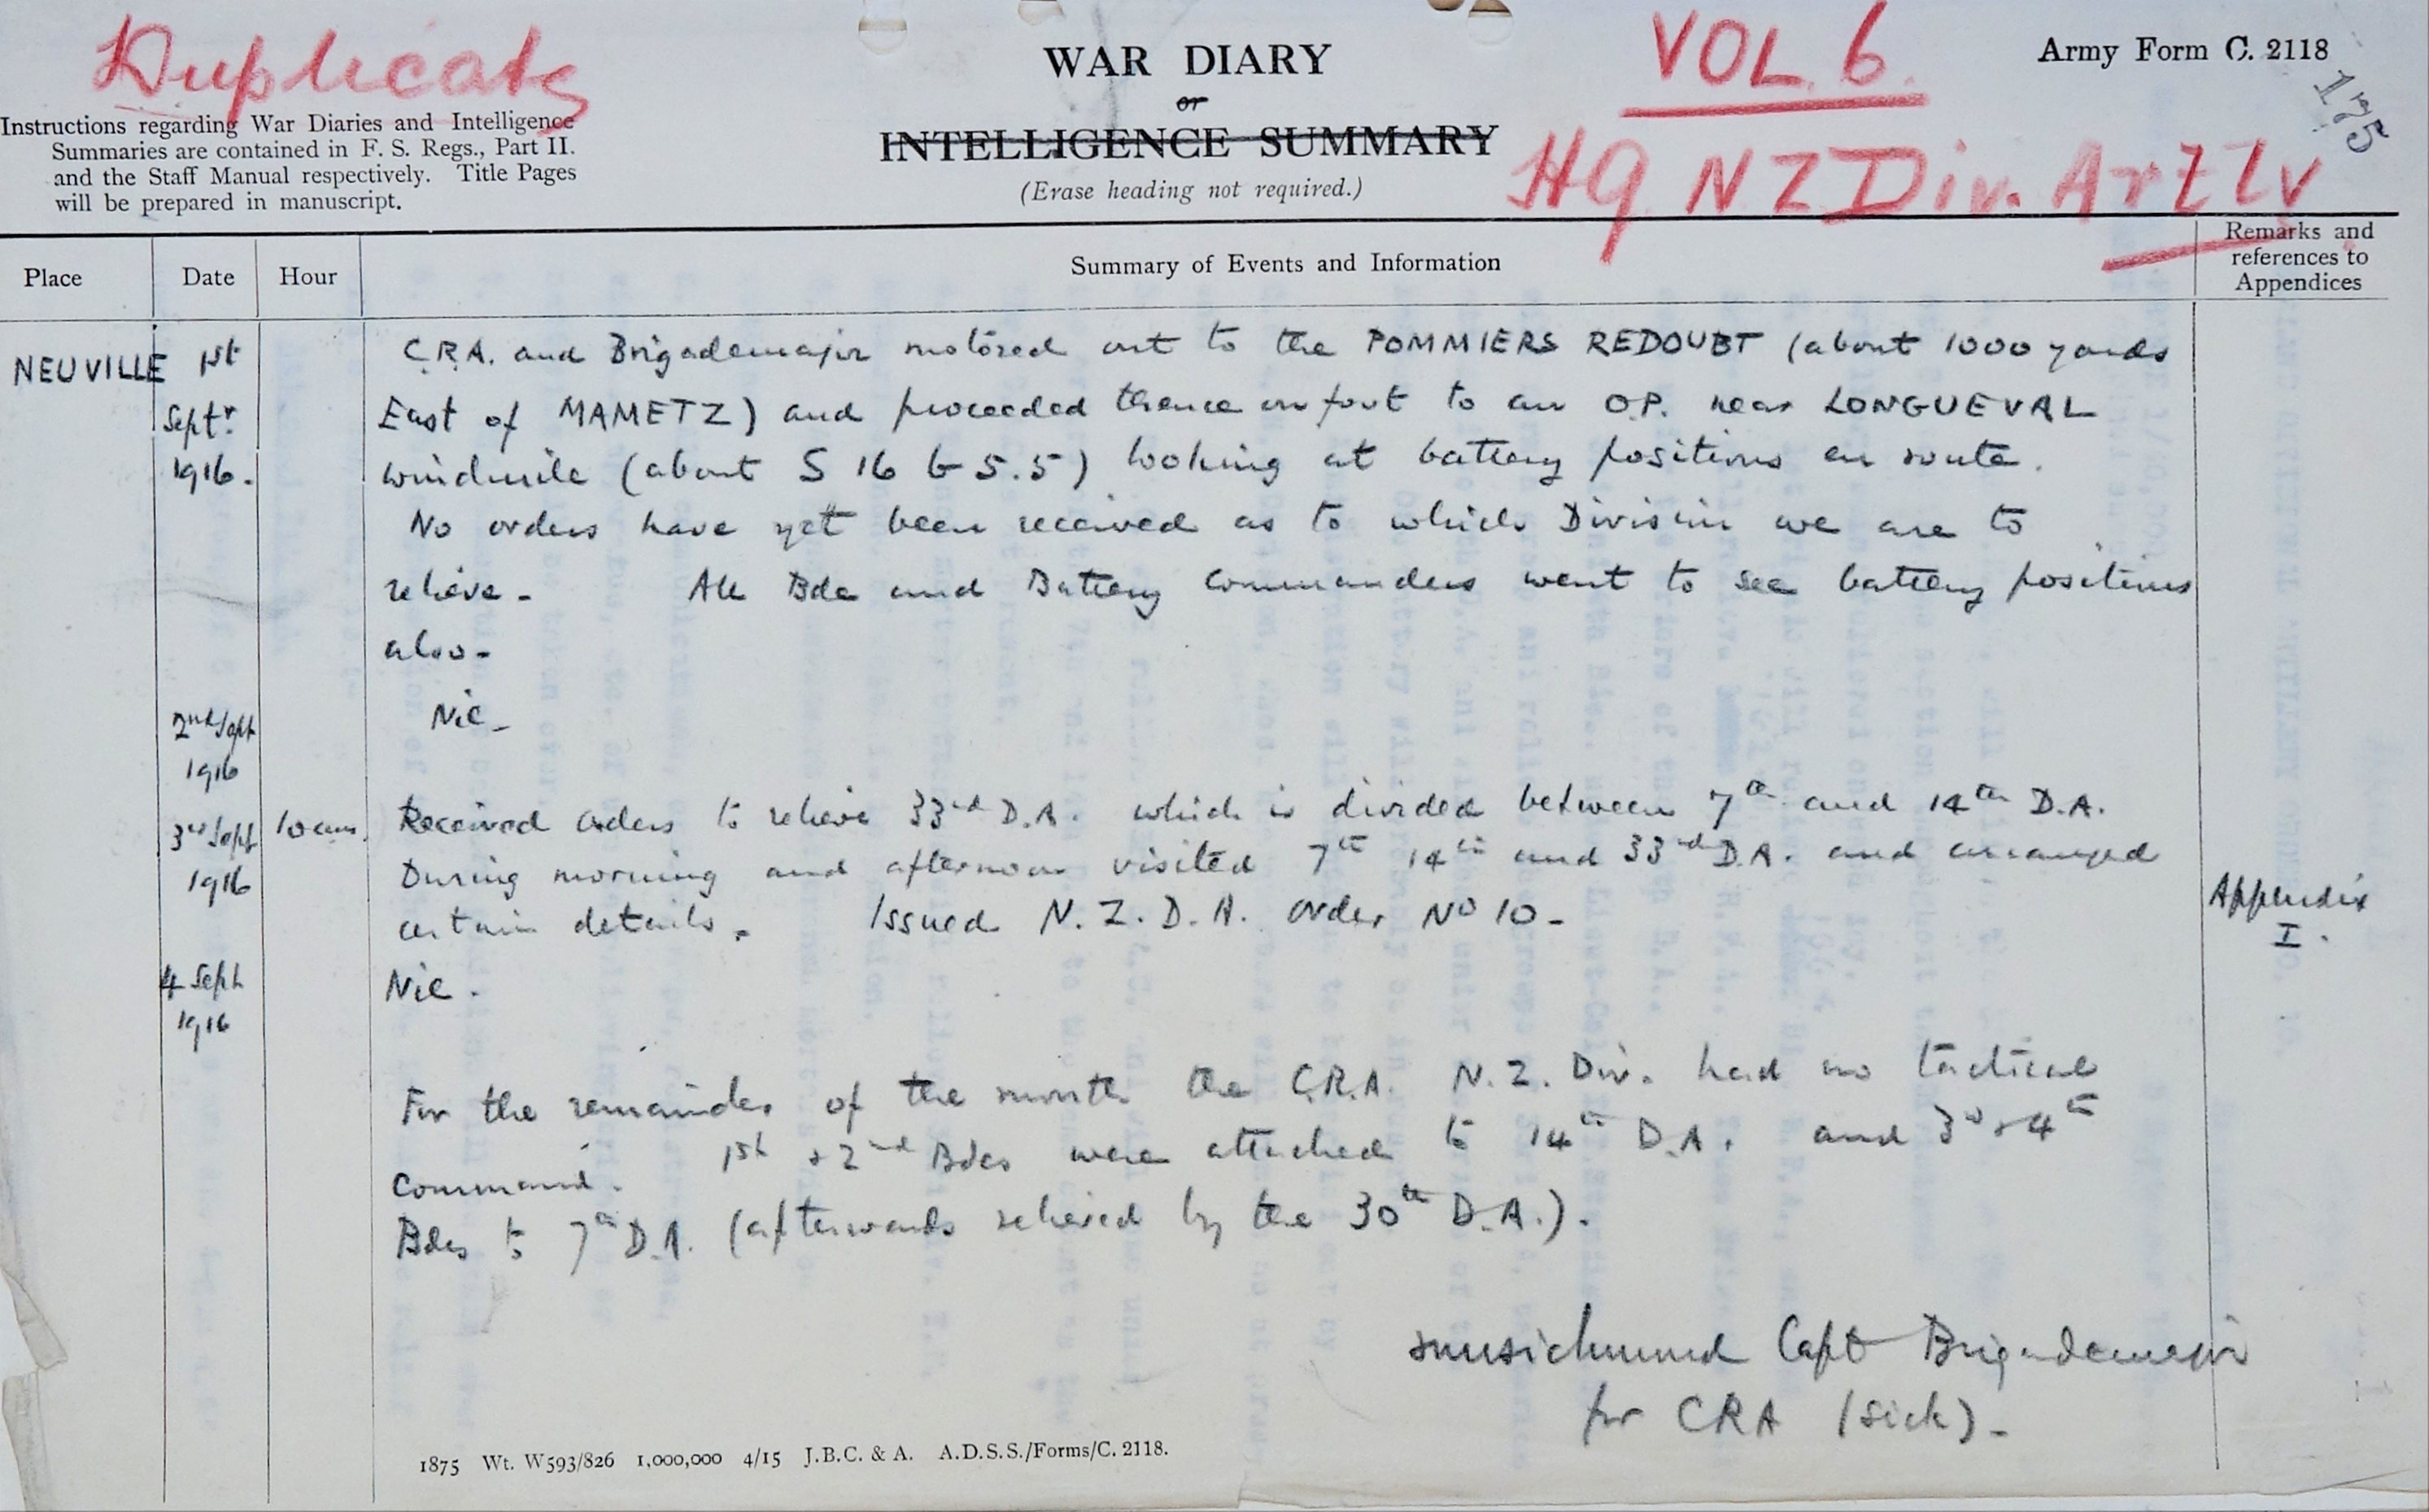 Duplicate
WAR DIARY
or
INTELLIGENCE SUMMARY
(Erase heading not required.)
VOL. 6.
HQ NZ Div. Artlly
Army Form C. 2118
175
Instructions regarding War Diaries and Intelligence
Summaries are contained in F. S. Regs., Part II.
and the Staff Manual respectively. Title Pages
will be prepared in manuscript.
Place
Date
Hour
Summary of Events and Information
Remarks and
references to
Appendices
NEUVILLE 1st
Septr.
1916.
C.R.A. and Brigademajor motored out to the POMMIERS REDOUBT (about 1000 yards
East of MAMETZ) and proceeded thence on foot to an O.P. near LONGUEVAL
windmile (about S 16 b 5.5) looking at battery positions en route.
No orders have yet been received as to which Division we are to
relieve - All Bde and Battery Commanders went to see battery positions
also -
2nd Sept
1916
Nil -
3rd Sept
1916
10 am.
Received orders to relieve 33rd D.A. which is divided between 7th and 14th D.A.
During morning and afternoon visited 7th 14th and 33rd D.A. and arranged
certain details. Issued N.Z.D.A. order No 10 -
Appendix
I.
4 Sept
1916
Nil.
For the remainder of the month the C.R.A. N.Z. Div. had no tactical
command. 1st & 2nd Bdes were attached to 14th D.A. and 3rd & 4th
Bdes to 7th D.A. (afterwards relieved by the 30th D.A.).
Capt Brigademajor
for CRA (sick) -
1875 Wt. W593/826 1,000,000 4/15 J.B.C. & A. A.D.S.S./Forms/C. 2118.